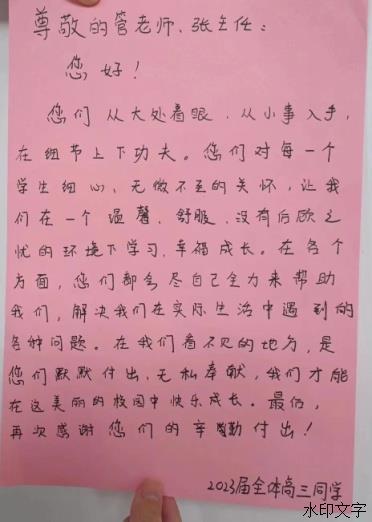 尊敬的管老师、张主任：
您好！
您们从大处着眼、从小事入手，
在细节上下功夫。您们对每一个
学生细心、无微不至的关怀，让我
们在一个温馨、舒服、没有后顾之
忧的环境下学习、幸福成长。在各个
方面，您们都会尽自己全力来帮助
我们，解决我们在实际生活中遇到的
各种问题。在我们看不见的地方，是
您们默默付出、无私奉献，我们才能
在这美丽的校园中快乐成长。最后，
再次感谢您们的辛勤付出！
2023届全体高三同学
水印文字